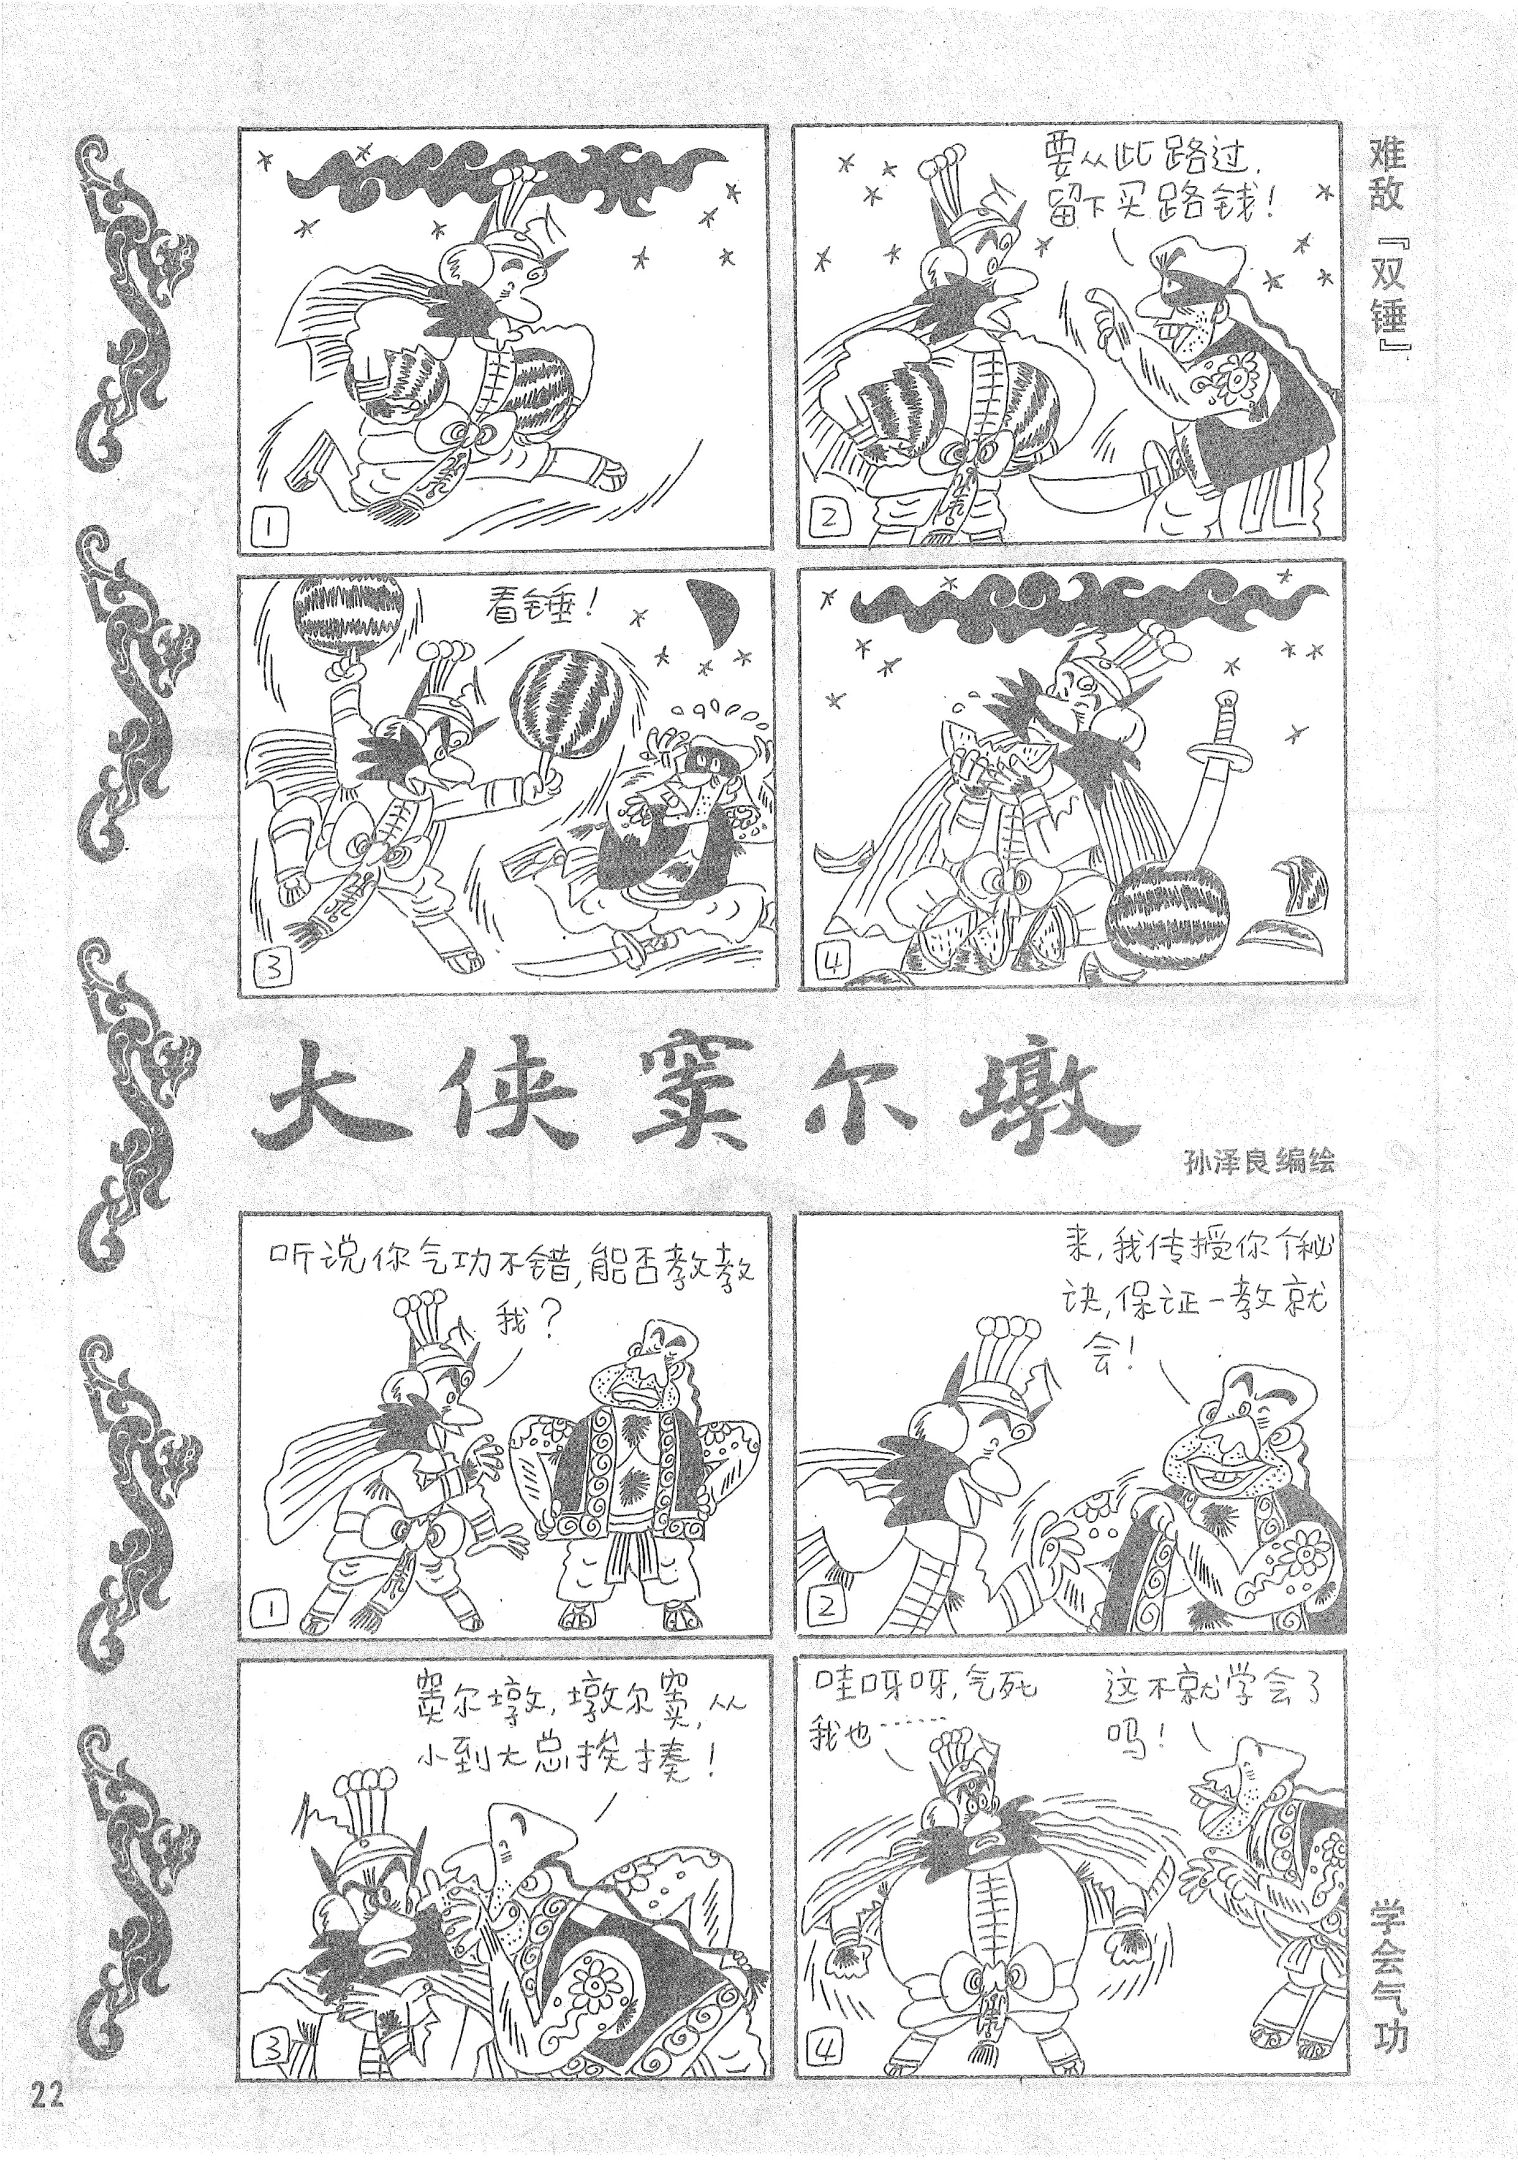 难敌『双锤』
1
要从此路过，
留下买路钱！
2
看锤！
3
4
大侠窦尔墩
孙泽良编绘
听说你气功不错，能否教教
我？
1
来，我传授你个秘
诀，保证一教就
会！
2
窦尔墩，墩尔窦，从
小到大总挨揍！
3
哇呀呀，气死
我也……
这不就学会了
吗！
4
学会气功
22